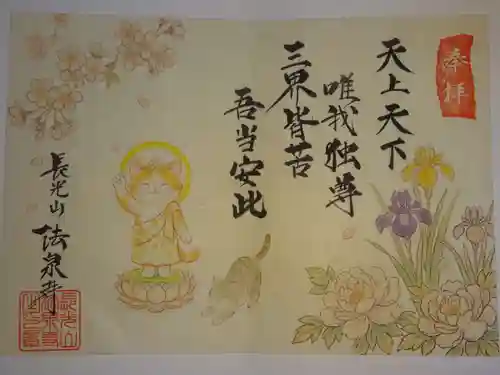 奉拝
天上天下
唯我独尊
三界皆苦
吾当安此
長光山
法泉寺